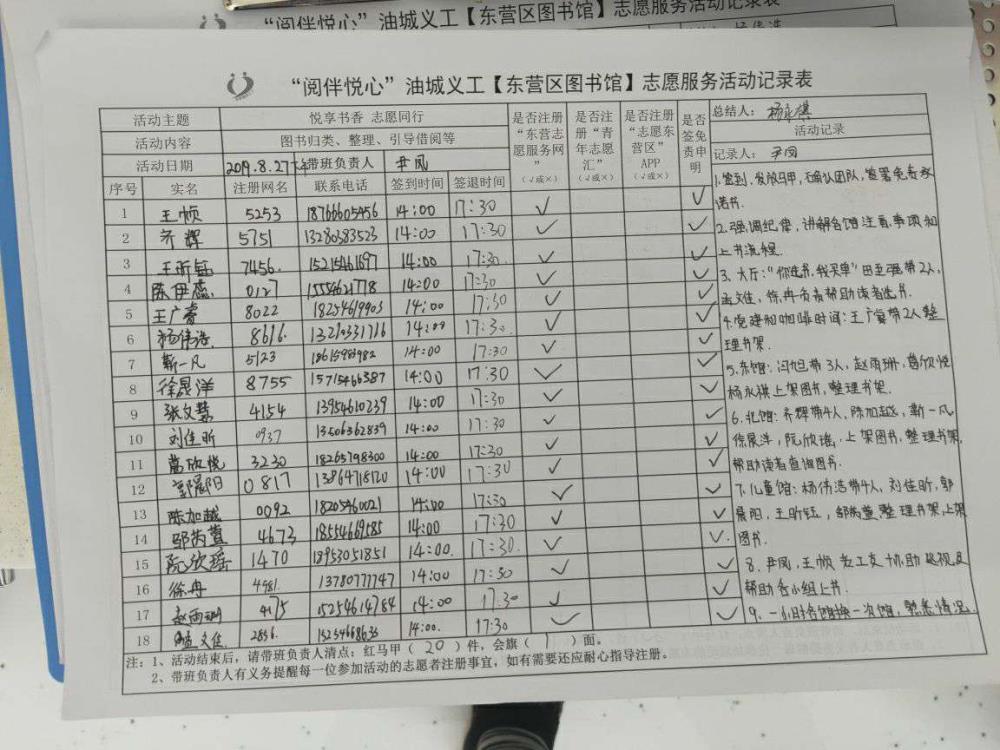 “阅伴悦心”油城义工【东营区图书馆】志愿服务活动记录表
“阅伴悦心”油城义工【东营区图书馆】志愿服务活动记录表
活动主题 悦享书香 志愿同行
活动内容 图书归类、整理、引导借阅等
活动日期 2019.8.27 带班负责人 尹凤
是否注册“东营志愿服务网”（√或×） 是否注册“青年志愿汇”（√或×） 是否注册“志愿东营区”APP（√或×） 是否签免责申明
总结人：杨永祺
活动记录
记录人：尹凤
序号 实名 注册网名 联系电话 签到时间 签退时间
1 王桢 5253 18766605456 14:00 17:30 √ √
2 齐辉 5751 13280383523 14:00 17:30 √ √
3 王昕钰 7456. 15215461697 14:00 17:30. √ √
4 陈伊蕊 0127 15554621778 14:00 17:30 √ √
5 王广睿 8022 18254619903 14:00 17:30 √ √
6 杨伟浩 8616. 13219331716 14:00 17:30. √ √
7 靳一凡 5123 18615983982 14:00 17:30 √ √
8 徐晟洋 8755 15715466387 14:00 17:30 √ √
9 张文慧 4154 13954610239 14:00 17:30 √ √
10 刘佳昕 0937 13506362839 14:00 17:30 √ √
11 葛欣悦 3230 18265798300 14:00 17:30 √ √
12 郭晨阳 0817 13864718120 14:00 17:30 √ √
13 陈加越 0092 18205460021 14:00 17:30 √ √
14 邹芮萱 4673 18554669585 14:00 17:30 √ √
15 阮欣瑶 1470 18953051851 14:00. 17:30. √ √
16 徐冉 4981. 13780777747 14:00 17:30 √ √
17 赵雨珊 4175 15254614784 14:00 17:30 √ √
18 孟文佳 2856. 14:00. 17:30 √ √
1.签到.发放马甲,确认团队,签署免责承
诺书.
2.强调纪律,讲解各馆注意事项和
上书流程.
3、大厅:“你选书,我买单”田至强带2人,
孟文佳,徐冉负责帮助读者选书.
4.党建和咖啡时间:王广睿带2人整
理书架.
5.东馆:冯旭带3人,赵雨珊,葛欣悦
杨永祺上架图书,整理书架.
6.北馆:齐辉带4人,陈加越,靳一凡
徐晟洋,阮欣瑶,上架图书,整理书架,
帮助读者查询图书.
7.儿童馆:杨伟浩带4人,刘佳昕,郭
晨阳,王昕钰,邹芮萱整理书架,上架
图书.
8.尹凤,王桢 协助巡视及
帮助各小组上书.
9.一小时各馆换一次馆,熟悉情况.
注：1、活动结束后，请带班负责人清点：红马甲（20）件，会旗（1）面。
2、带班负责人有义务提醒每一位参加活动的志愿者注册事宜，如有需要还应耐心指导注册。